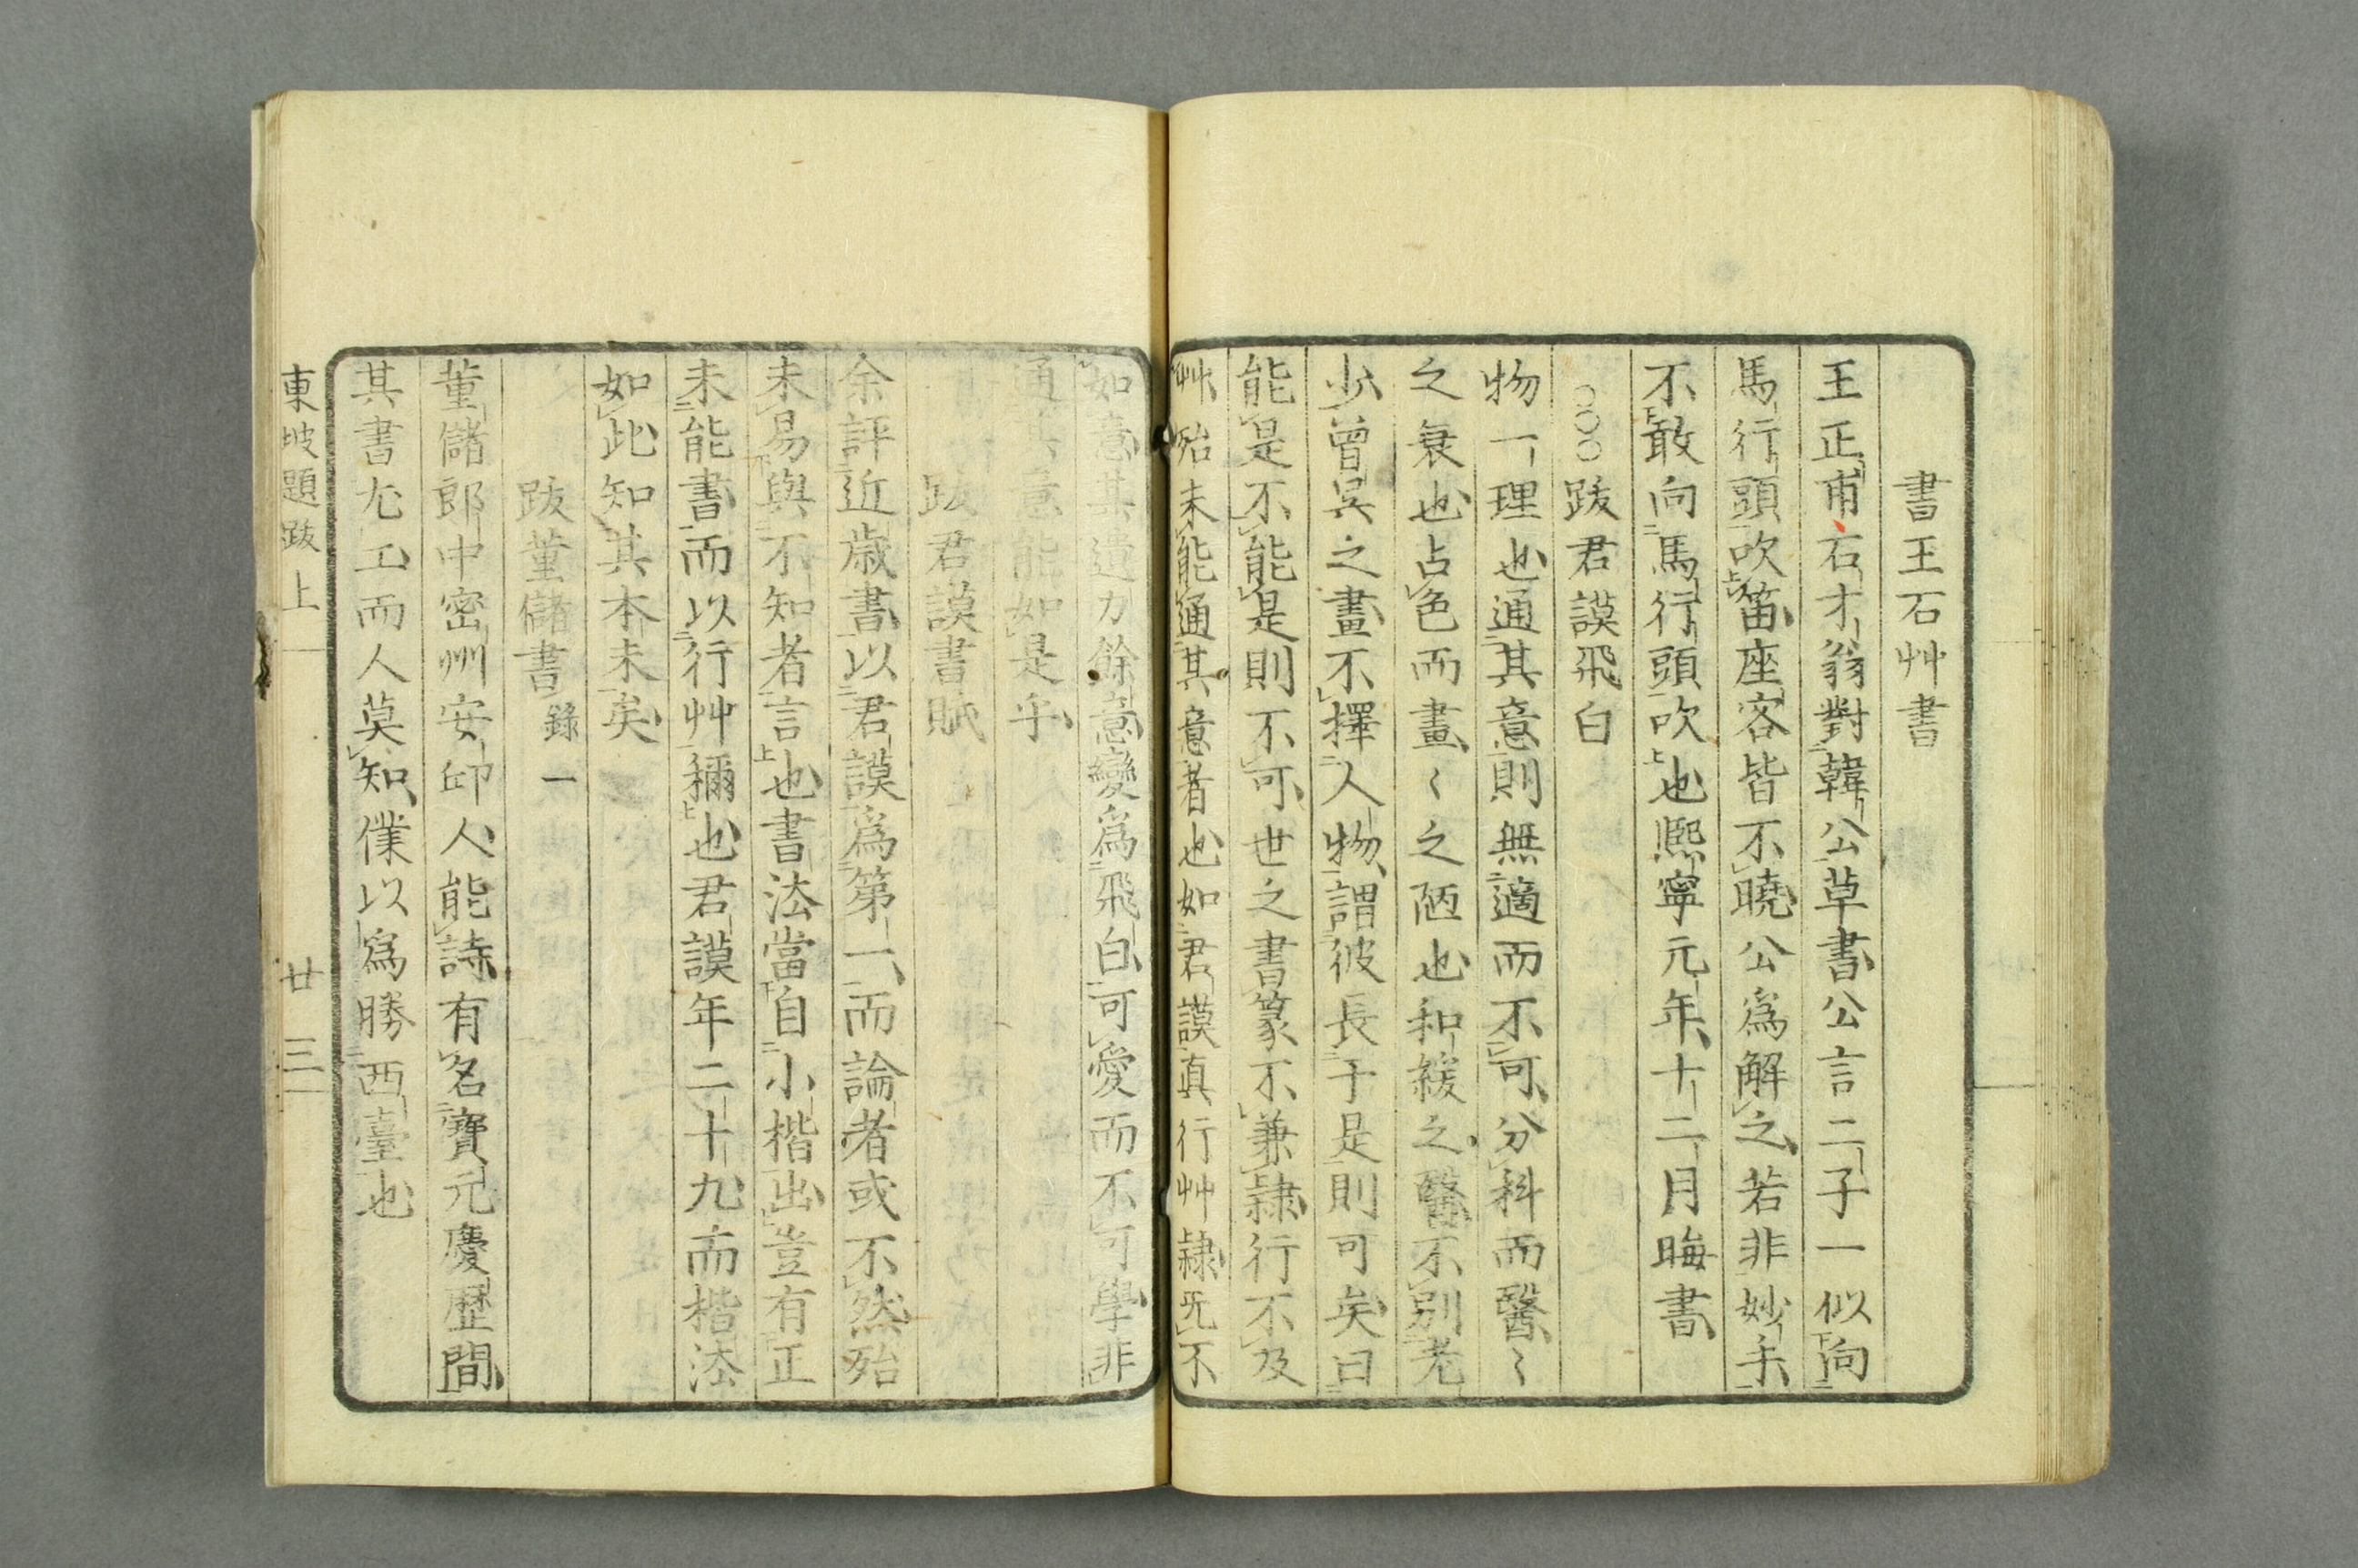 書王石艸書
王正甫石才翁對韓公草書公言二子一似向
馬行頭吹笛座客皆不曉公爲解之若非妙手
不敢向馬行頭吹也熙寧元年十二月晦書
○○○跋君謨飛白
物一理也通其意則無適而不可分科而醫〻
之衰也占色而畫〻之陋也和緩之醫不別老
少曾吳之畫不擇人物謂彼長于是則可矣曰
能是不能是則不可世之書篆不兼隷行不及
艸殆未能通其意者也如君謨真行艸隷旡不
如意其遺力餘意變爲飛白可愛而不可學非
通其意能如是乎
跋君謨書賦
余評近歲書以君謨爲第一而論者或不然殆
未易與不知者言也書法當自小楷出豈有正
未能書而以行艸稱也君謨年二十九而楷法
如此知其本末矣
跋董儲書 錄一
董儲郎中密州安邱人能詩有名寶元慶歴間
其書尤工而人莫知僕以爲勝西臺也
東坡題跋 上 廿三